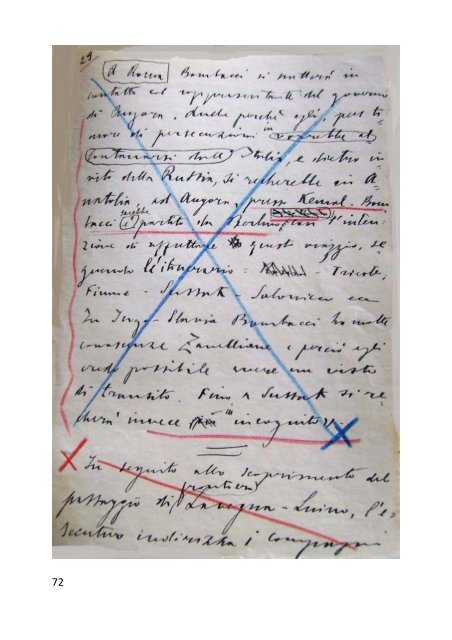 29
A Roma Bombacci si metterà in
contatto col rappresentante del governo
di Angora. Anche perché egli, per ti-
more di persecuzioni in vorrebbe al-
lontanarsi dall'Italia, e dietro in-
vito della Russia, si recherebbe in A-
natolia, ad Angora, presso Kemal. Bom-
bacci è sarebbe partito da Berlino con l'inten-
zione di effettuare questo viaggio, se-
guendo l'itinerario - Trieste,
Fiume - Sussak - Salonicco ecc
In Jugo-Slavia Bombacci ha molte
conoscenze e perciò egli
crede possibile avere un visto
di transito. Fino a Sussak si re-
cherà invece in incognito
In seguito allo scoprimento del
passaggio di frontiera Lavena - Luino, l'e-
secutivo indirizza i compagni
72